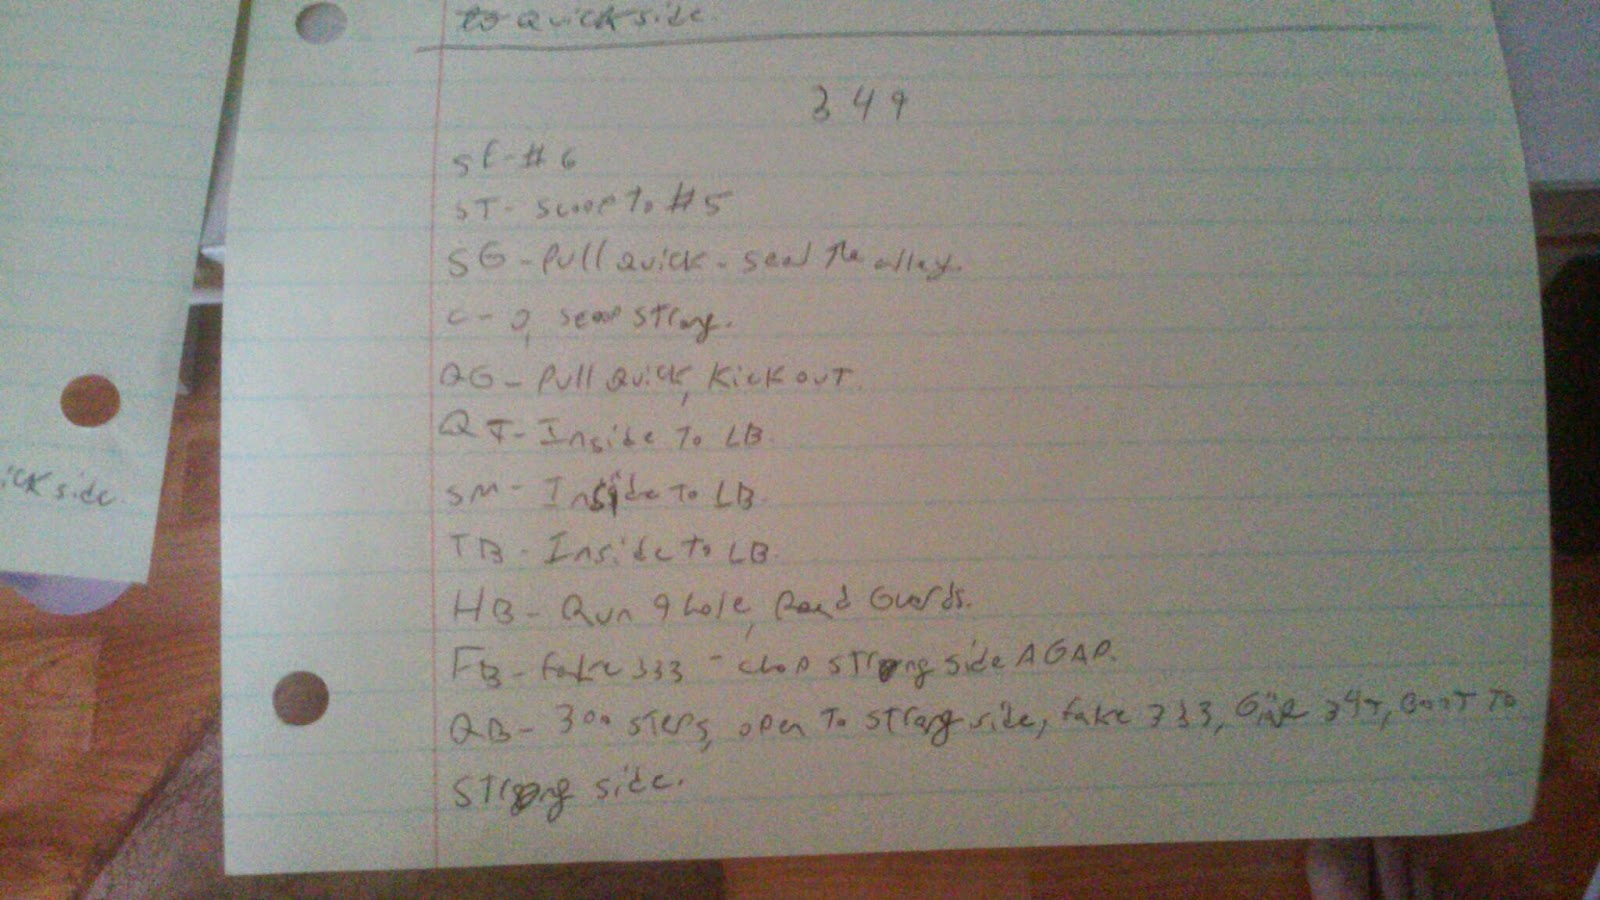 to Quick side.
349
SE - # 6
ST - scoop To # 5
SG - Pull Quick - seal The alley.
C - 0, scoop strong.
QG - Pull Quick, Kick out.
QT - Inside To LB.
SM - Inside To LB.
TB - Inside To LB.
HB - Run 9 hole, Read Guards.
FB - fake 333 - chop strong side A GAP.
QB - 300 steps, open To strong side, fake 333, Give 349, BOOT TO
strong side.
ick side.